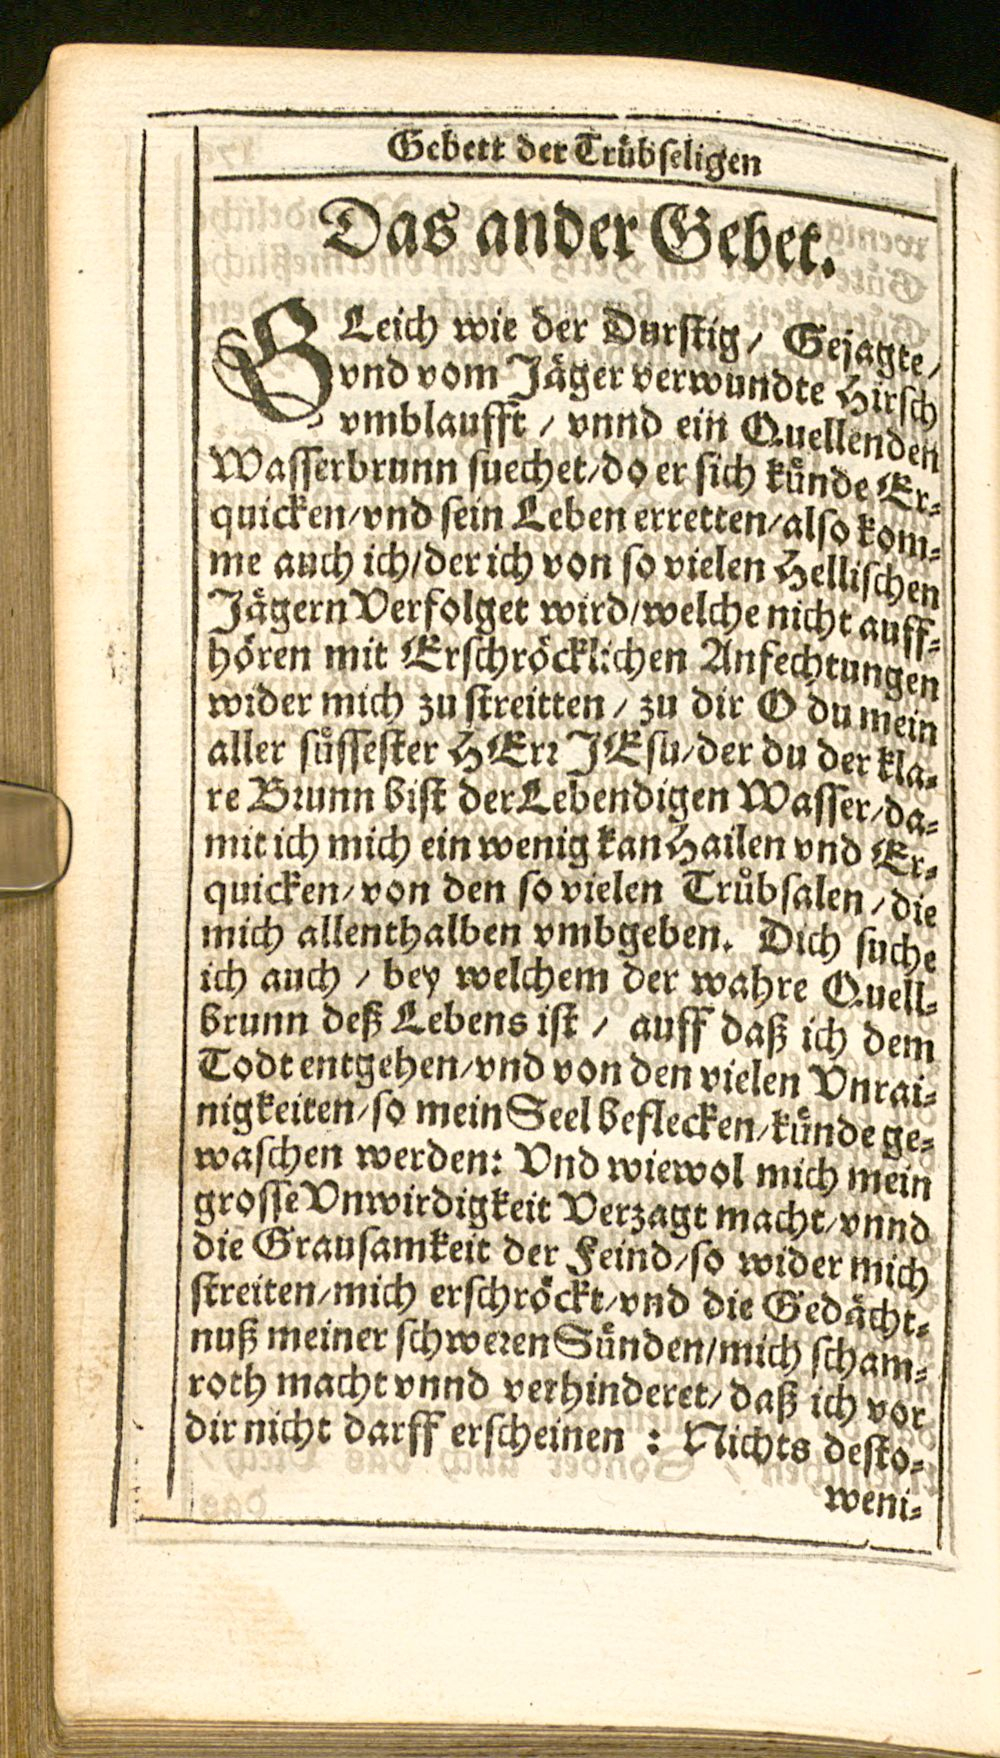 Gebett der Trübseligen
Das ander Gebet.
GLeich wie der Durstig / Gejagte /
vnd vom Jäger verwundte Hirsch
vmblaufft / vnnd ein Quellenden
Wasserbrunn suechet / do er sich künde Er-
quicken / vnd sein Leben erretten / also kom-
me auch ich / der ich von so vielen Hellischen
Jägern Verfolget wird / welche nicht auff-
hören mit Erschröcklichen Anfechtungen
wider mich zu streitten / zu dir O du mein
aller süssester HErr JEsu / der du der kla-
re Brunn bist der Lebendigen Wasser / da-
mit ich mich ein wenig kan Hailen vnd Er-
quicken / von den so vielen Trübsalen / die
mich allenthalben vmbgeben. Dich suche
ich auch / bey welchem der wahre Quell-
brunn deß Lebens ist / auff daß ich dem
Todt entgehen / vnd von den vielen Vnrai-
nigkeiten / so mein Seel beflecken / künde ge-
waschen werden: Vnd wiewol mich mein
grosse Vnwirdigkeit Verzagt macht / vnnd
die Grausamkeit der Feind / so wider mich
streiten / mich erschröckt / vnd die Gedächt-
nuß meiner schweren Sünden / mich scham-
roth macht vnnd verhinderet / daß ich vor
dir nicht darff erscheinen : Nichts desto-
weni-